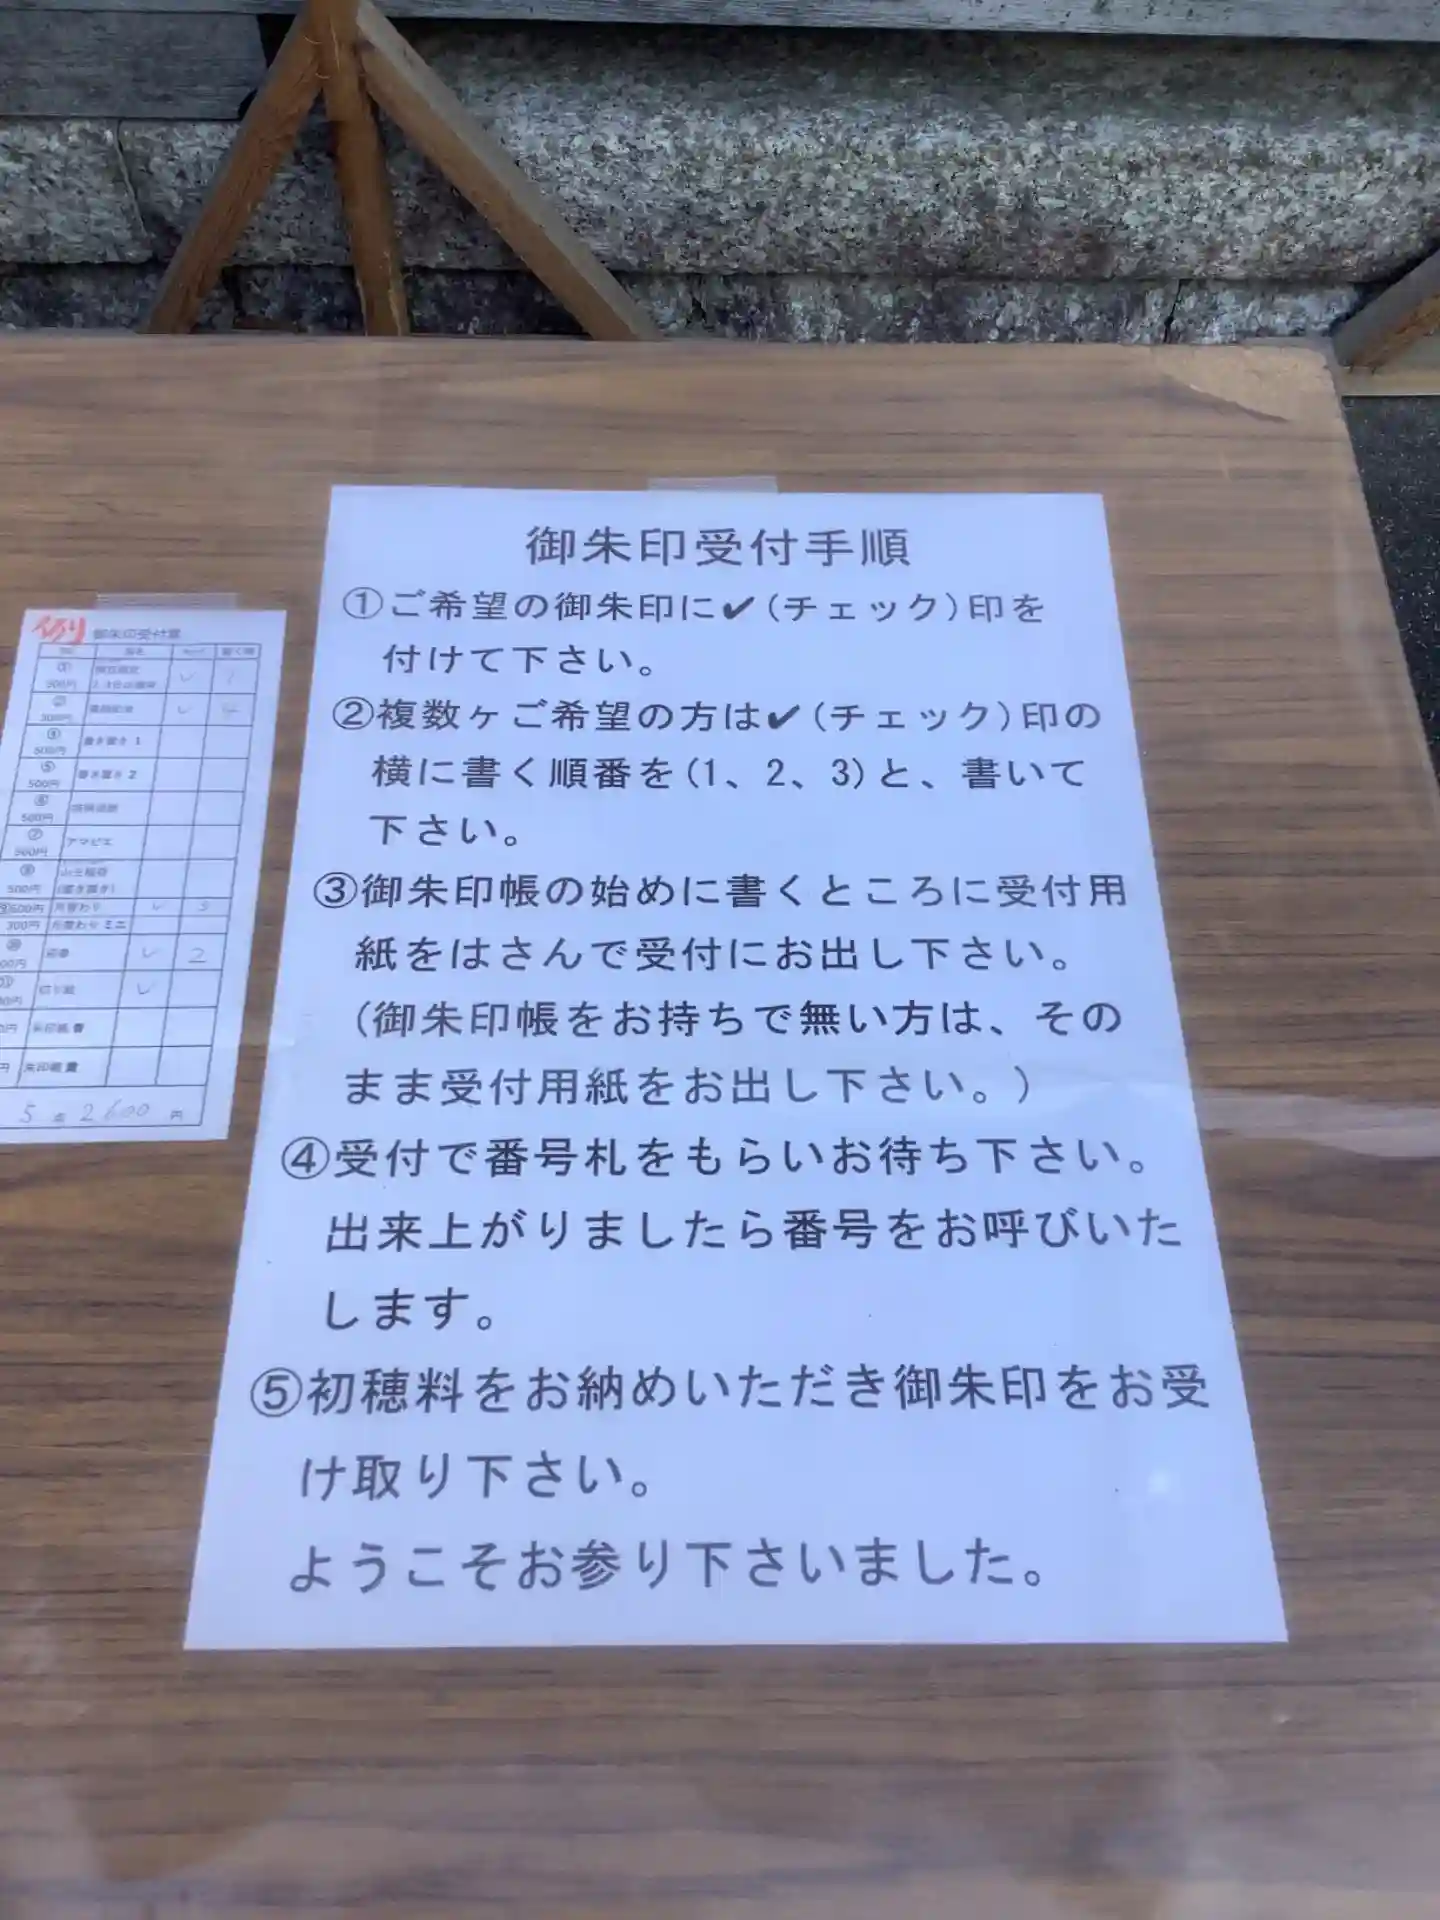 御朱印受付手順
①ご希望の御朱印に✔(チェック)印を
付けて下さい。
②複数ヶご希望の方は✔(チェック)印の
横に書く順番を(1、2、3)と、書いて
下さい。
③御朱印帳の始めに書くところに受付用
紙をはさんで受付にお出し下さい。
(御朱印帳をお持ちで無い方は、その
まま受付用紙をお出し下さい。)
④受付で番号札をもらいお待ち下さい。
出来上がりましたら番号をお呼びいた
します。
⑤初穂料をお納めいただき御朱印をお受
け取り下さい。
ようこそお参り下さいました。
例 御朱印受付票
① 500円
② 300円
500円 書き置き 1
⑤ 500円 書き置き 2
⑥ 500円
⑦ 500円 アマビエ
500円 (書き置き)
500円 月替わり 3
300円 月替わりミニ
2
切り絵
5 点 2600 円